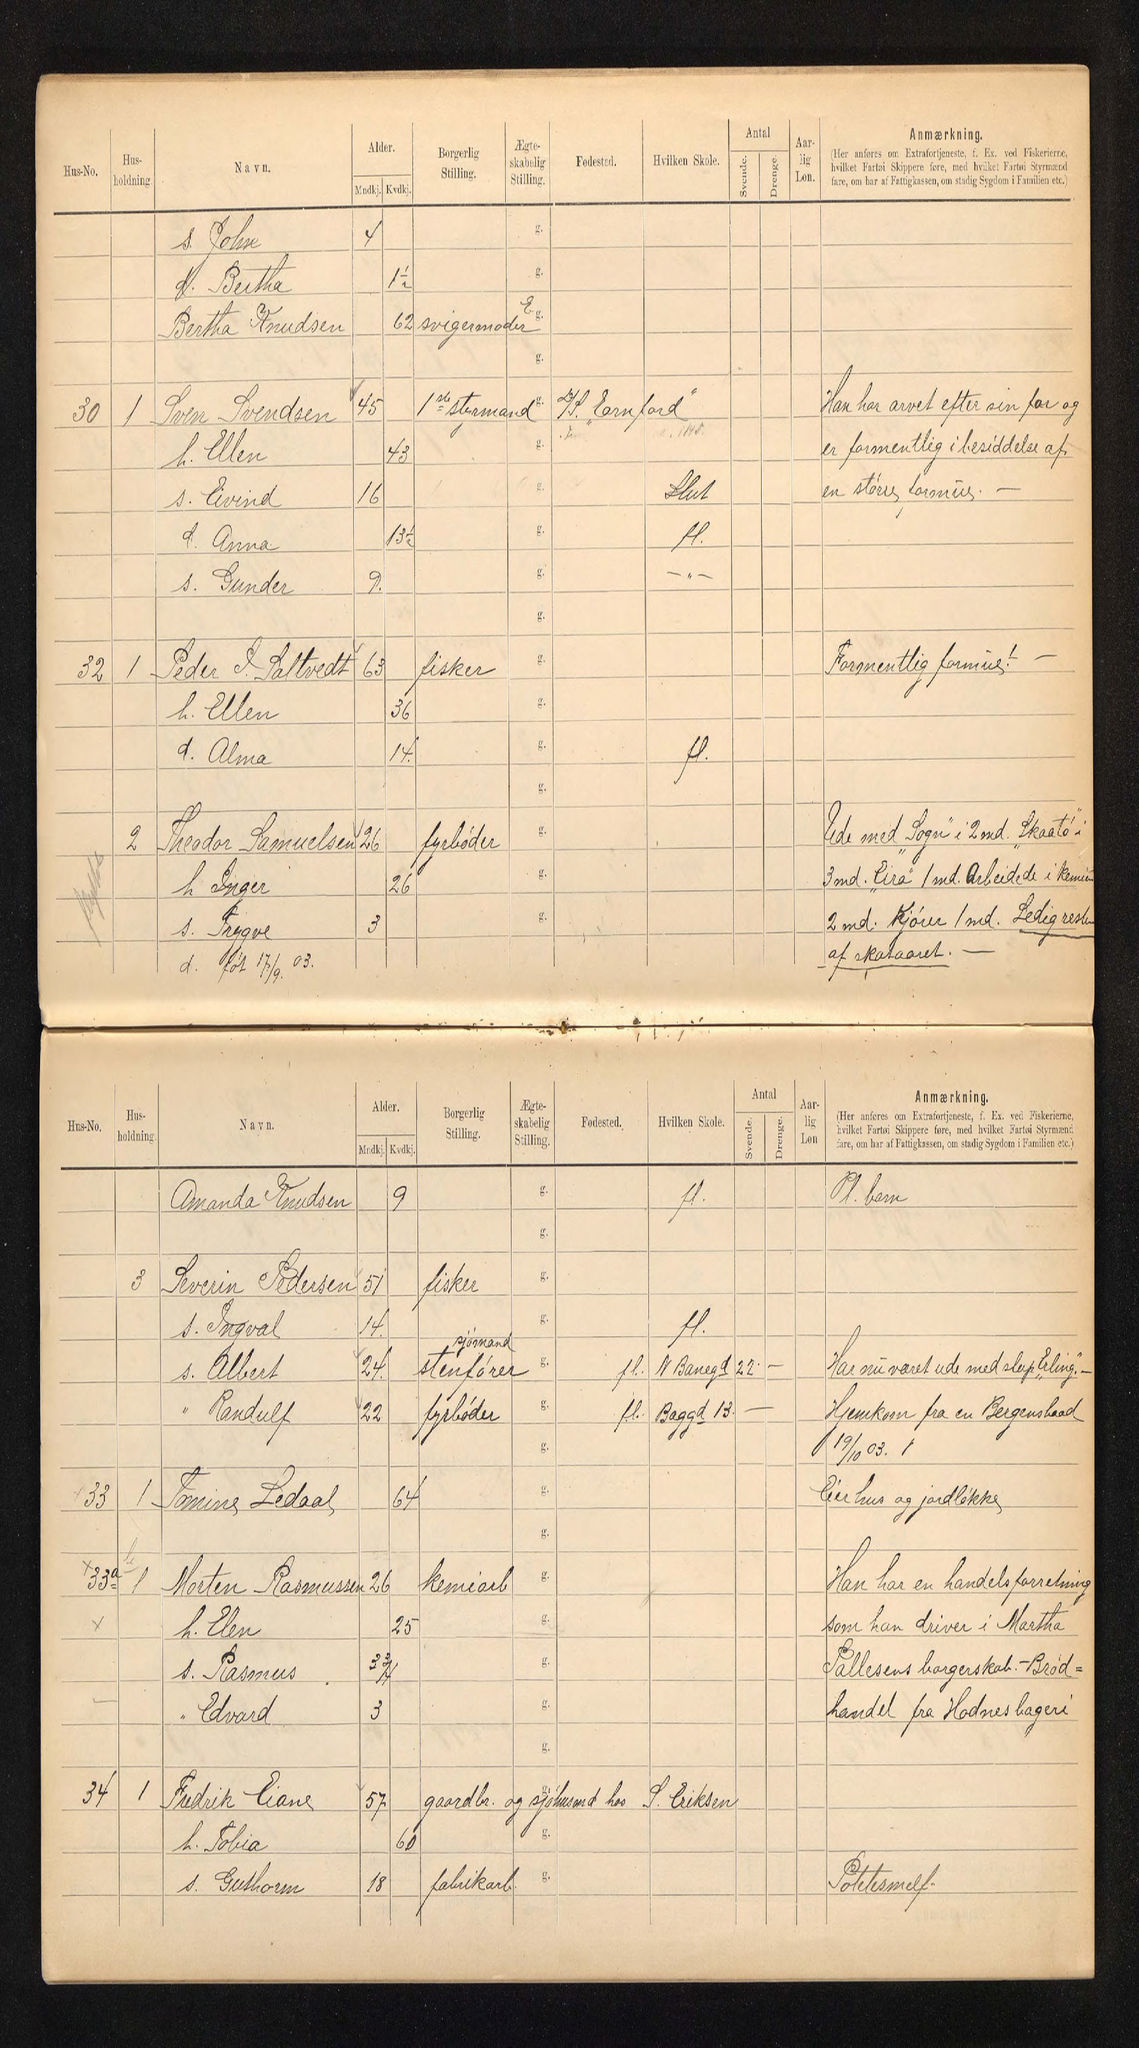 Hus-No. Hus-holdning Navn. Alder. Mndkj. Kvdkj. Borgerlig Stilling. Ægte-skabelig Stilling. Fødested. Hvilken Skole. Antal Svende. Drenge. Aar-lig Løn. Anmærkning.
(Her anføres om Extrafortjeneste, f. Ex. ved Fiskerierne,
hvilket Fartøi Skippere føre, med hvilket Fartøi Styrmænd
fare, om har af Fattigkassen, om stadig Sygdom i Familien etc.)
s. John 4 g.
d. Bertha 1½ g.
Bertha Knudsen 62 svigermoder E g.
g.
30 1 Sven Svendsen 45 1ste styrmand g. D/S. "Earnford" Han har arvet efter sin far og
h. Ellen 43 g. er formentlig i besiddelse af
s. Eivind 16 g. Slut en større formue. —
d. Anna 13½ g. fl.
s. Gunder 9. g. — " —
g.
32 1 Peder S. Saltvedt 63 fisker g. Formentlig formue! —
h. Ellen 36 g.
d. Alma 14. g. fl.
g.
2 Theodor Samuelsen 26 fyrbøder g. Ude med "Sogn" i 2 md. "Skaatø" i
h. Inger 26 g. 3 md. "Eira" 1 md. Arbeidede i kemien
s. Trygve 3 g. 2 md. Kjører 1 md. Ledig resten
d. føt 17/9. 03. af skataaret. —
Hus-No. Hus-holdning Navn. Alder. Mndkj. Kvdkj. Borgerlig Stilling. Ægte-skabelig Stilling. Fødested. Hvilken Skole. Antal Svende. Drenge. Aar-lig Løn Anmærkning.
(Her anføres om Extrafortjeneste, f. Ex. ved Fiskerierne,
hvilket Fartøi Skippere føre, med hvilket Fartøi Styrmænd
fare, om har af Fattigkassen, om stadig Sygdom i Familien etc.)
Amanda Knudsen 9 g. fl. Pl. barn
g.
3 Severin Pedersen 51 fisker g.
s. Ingval 14. g. fl.
sjømand
s. Albert 24. stenfører g. fl. N Banegd 22. — Har nu været ude med slup "Erling". —
" Randulf 22 fyrbøder g. fl. Baggd 13. — Hjemkom fra en Bergensbaad
g. 19/10 03.
33 1 Tomine Ledaal 64 g. Eier hus og jordløkke
g.
33a 1 Morten Rasmussen 26 kemiarb g. Han har en handelsforretning
h. Elen 25 g. som han driver i Martha
s. Rasmus 3¾ g. Pallesens borgerskab. — Brød=
" Edvard 3 g. handel fra Hodnes bageri
g.
34 1 Fredrik Eiane 57 gaardbr. og sjøhusmd hos S. Eriksen
h. Tobia 60 g.
s. Guthorm 18 fabrikarb g. Potetesmelf.